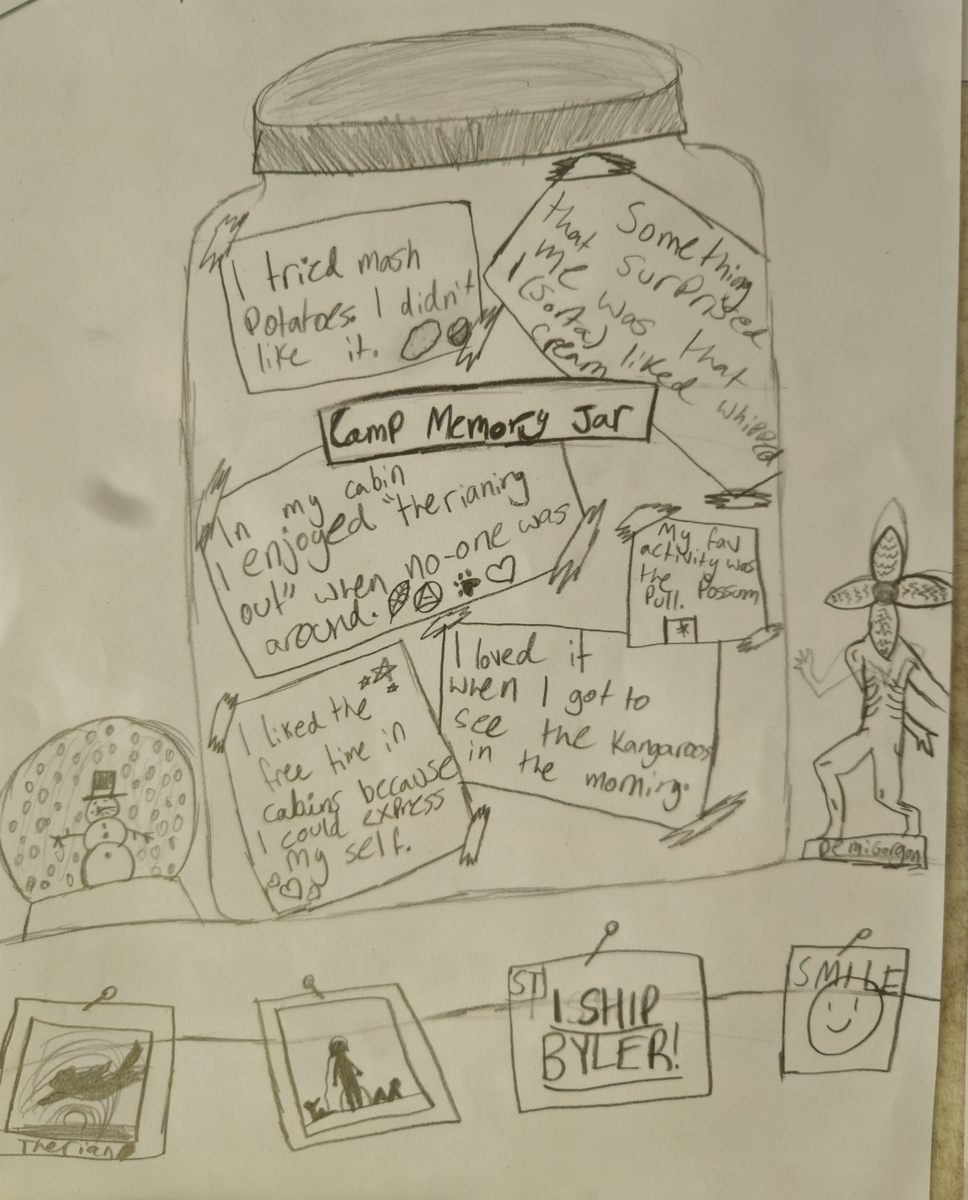 I tried mash
Potatoes. I didn't
like it.
Something
that surprised
me was that
I (sorta) liked whipped
cream
Camp Memory Jar
In my cabin
I enjoyed "therianing
out" when no-one was
around.
My fav
activity was
the Possum
Pull.
I liked the
free time in
cabins because
I could express
my self.
I loved it
when I got to
see the Kangaroos
in the morning.
DemiGorgon
Therian
ST
I SHIP
BYLER!
SMILE